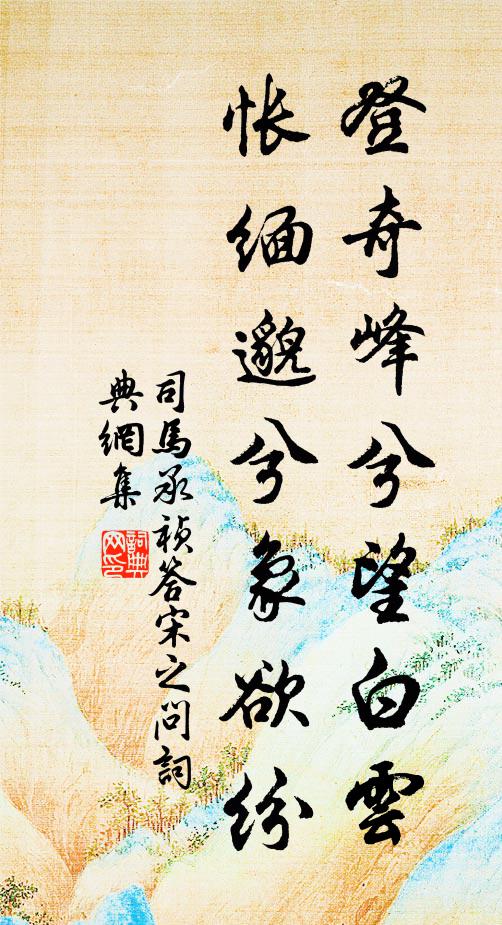 登奇峰兮望白雲
悵緬邈兮象欲紛
司馬承禎答宋之問詞
典網集
詞典
网印